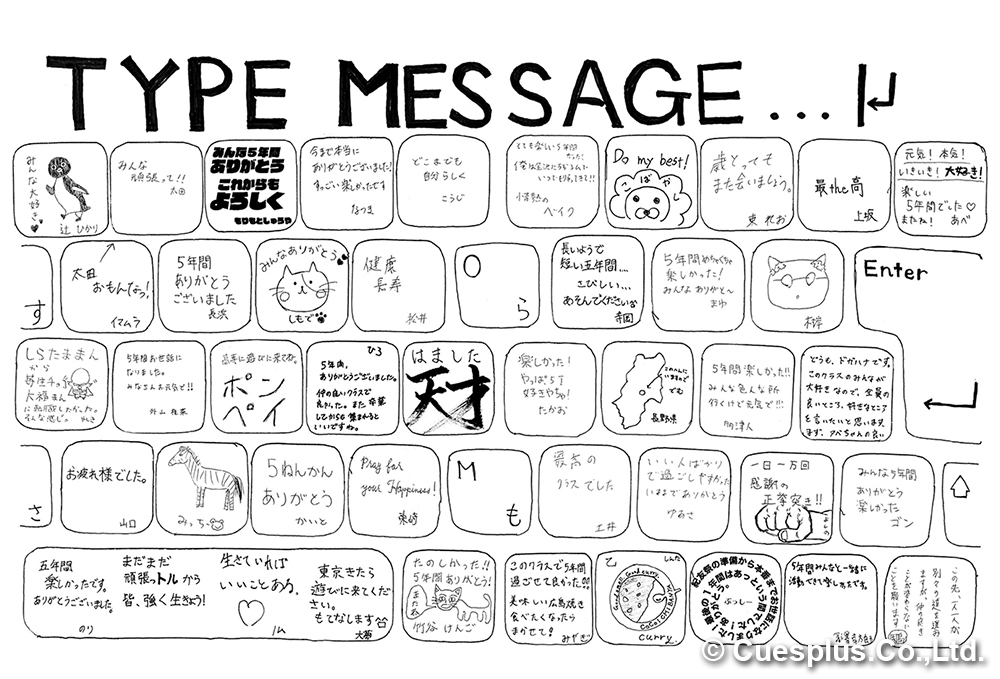 TYPE MESSAGE...
みんな大好き♥
辻 ひかり
みんな
頑張って!!
太田
みんな5年間
ありがとう
これからも
よろしく
もりもとしゅうや
今まで本当に
ありがとうございました!
すっごい楽しかったです
なつき
どこまでも
自分らしく
こうじ
とても楽しい5年間
情熱の
ベイク
Do my best!
こばや
歳とっても
また会いましょう。
東 れお
最the高
上坂
元気!本気!
いきいき!大好き!
楽しい
5年間でした♡
またね! あべ
す
太田
おもんなっ!
イマムラ
5年間
ありがとう
ございました
長浜
みんなありがとう
しもで
健康
長寿
松井
O
ら
長いようで
短い五年間....
さびしい...
あそんでください
寺田
5年間めちゃくちゃ
楽しかった!
みんな ありがと〜
まゆ
Enter
LSたままん
から
5年間お世話に
なりました。
みなさんお元気で!!
外山
ポン
ペイ
ひろ
5年間、
ありがとうございました。
仲の良いクラスで
良かった。また 卒業
してからも 集まれると
いいですね。
はました
天才
楽しかった!
やっぱ5丁
好きやわ!
たかお
このへんに
いますので
でも
長野県
5年間楽しかった!!
みんな色んな所
行くけど元気で!!
どうも、ドガハナです。
このクラスのみんなが
大好きなので、全員の
良いところ、好きなところ
を言いたいと思います
まず、タバちゃんの良い
さ
お疲れ様でした。
山口
みっちー
5ねんかん
ありがとう
かいと
Pray for
your Happiness!
東崎
M
も
最高の
クラスでした
土井
いい人ばかり
で過ごしやすかった
いままでありがとう
ゆあさ
一日一万回
感謝の
正拳突き!!
みんな5年間
ありがとう
楽しかった
ゴン
五年間
楽しかったです。
ありがとうございました。
のり
まだまだ
頑張っトル から
皆、強く生きよう!
生きていれば
いいことある。
東京きたら
遊びに来てくだ
さい。
もてなします
大薮
たのしかった!!
5年間ありがとう!
またね
竹谷 けんご
このクラスで5年間
過ごせて良かった!!
美味しい広島焼き
食べたくなったら
まかせて!
みやざき
乙
しんた
Good smell Good curry
CoCo ICHIBANYA
curry.
記念祭の準備から本番までお世話になりました!最後の1年間はあっという間でした!ありがとう。
ぶっしー
5年間みんなと一緒に
活動できて楽しかったです。
この先、一人一人が
別々の道を進み
ますが、仲の良さ
© Cuesplus.Co.,Ltd.